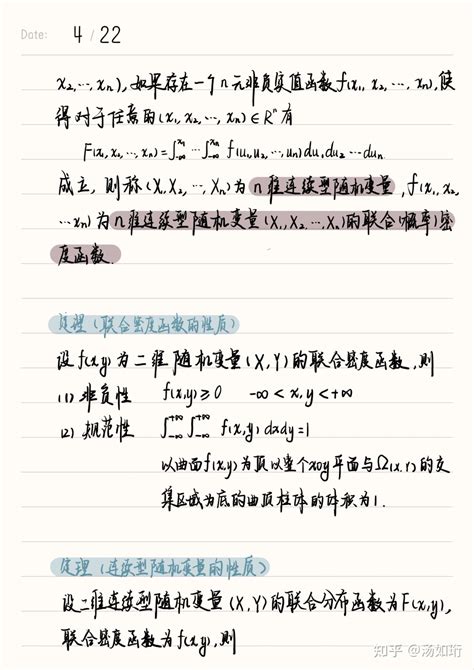 Date: 4 / 22
x₂,⋯,xₙ),如果存在一个n元非负实值函数f(x₁, x₂,⋯, xₙ),使
得对于任意的(x₁, x₂,⋯, xₙ)∈Rⁿ有
F(x₁, x₂,⋯, xₙ)=∫_{-∞}^{x₁}⋯∫_{-∞}^{xₙ} f(u₁,u₂,⋯,uₙ)du₁du₂⋯duₙ
成立,则称(X₁,X₂,⋯,Xₙ)为n维连续型随机变量,f(x₁, x₂,
⋯xₙ)为n维连续型随机变量(X₁,X₂,⋯,Xₙ)的联合(概率)密
度函数.
定理(联合密度函数的性质)
设f(x,y)为二维随机变量(X,Y)的联合密度函数,则
(1) 非负性 f(x,y)≥0 -∞<x,y<+∞
(2) 规范性 ∫_{-∞}^{+∞}∫_{-∞}^{+∞} f(x,y)dxdy=1
以曲面f(x,y)为顶以整个xoy平面与Ω(x,Y)的交
集区域为底的曲顶柱体的体积为1.
定理(连续型随机变量的性质)
设二维连续型随机变量(X,Y)的联合分布函数为F(x,y),
联合密度函数为f(x,y),则
知乎 @汤如珩